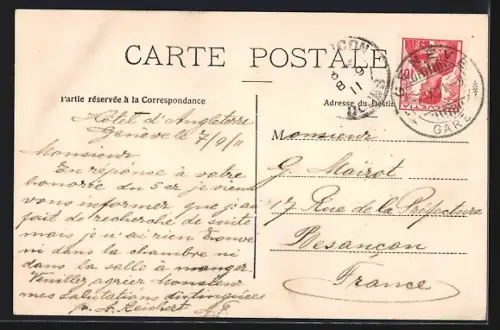 CARTE POSTALE
Partie réservée à la Correspondance
Adresse du Destin
Hôtel d'Angleterre
Genève le 7/9/11
Monsieur
En réponse à votre
honorée du 5 cr je viens
vous informer que j'ai
fait de recherche de suite
mais je n'ai rien trouvé
ni dans la chambre ni
dans la salle à manger.
Veuillez agréer Monsieur
mes salutations distinguées
p. A. Reichert
Monsieur
G. Mairot
17 Rue de la Préfecture
Besançon
France
GENÈVE
GARE
HELVETIA